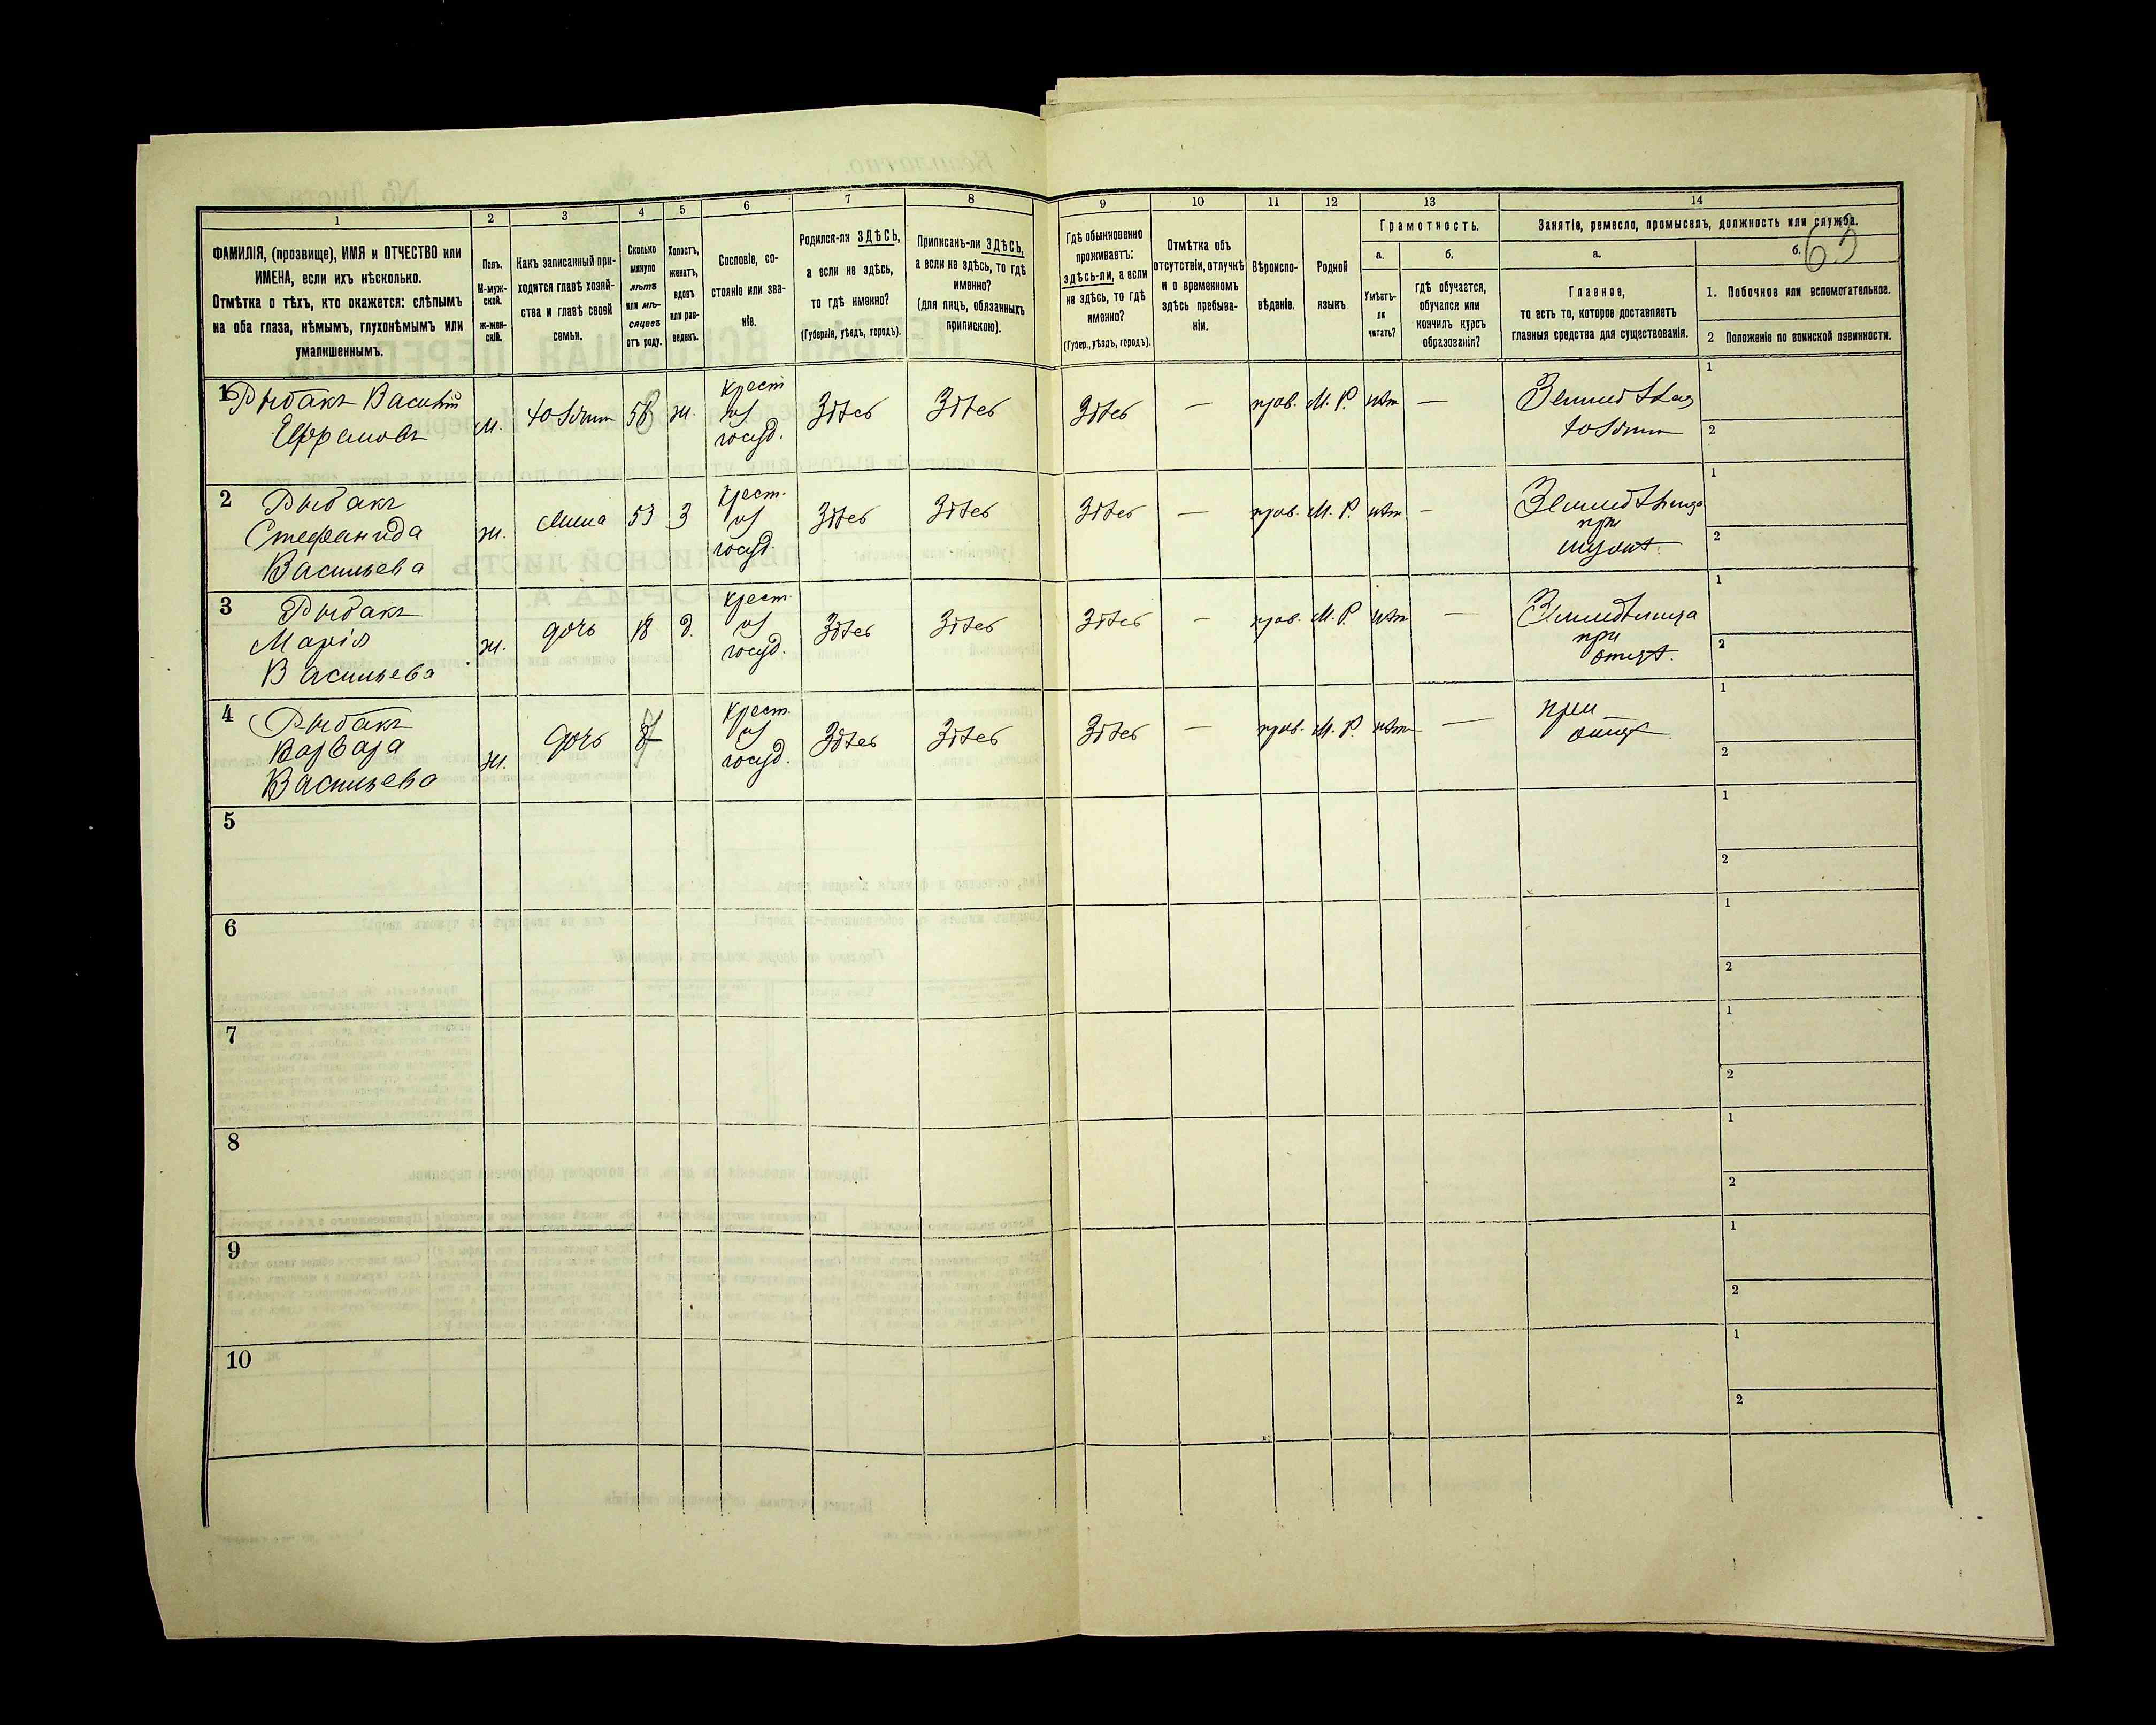 1 2 3 4 5 6 7 8 9 10 11 12 13 14
ФАМИЛІЯ, (прозвище), ИМЯ и ОТЧЕСТВО или
ИМЕНА, если ихъ нѣсколько.
Отмѣтка о тѣхъ, кто окажется: слѣпымъ
на оба глаза, нѣмымъ, глухонѣмымъ или
умалишеннымъ.
Полъ.
М-муж-
ской.
ж-жен-
скій.
Какъ записанный при-
ходится главѣ хозяй-
ства и главѣ своей
семьи.
Сколько
минуло
лѣтъ
или мѣ-
сяцевъ
отъ роду.
Холостъ,
женатъ,
вдовъ
или раз-
веденъ.
Сословіе, со-
стояніе или зва-
ніе.
Родился-ли ЗДѢСЬ,
а если не здѣсь,
то гдѣ именно?
(Губернія, уѣздъ, городъ).
Приписанъ-ли ЗДѢСЬ,
а если не здѣсь, то гдѣ
именно?
(для лицъ, обязанныхъ
припискою).
Гдѣ обыкновенно
проживаетъ:
здѣсь-ли, а если
не здѣсь, то гдѣ
именно?
(Губер., уѣздъ, городъ).
Отмѣтка объ
отсутствіи, отлучкѣ
и о временномъ
здѣсь пребыва-
ніи.
Вѣроиспо-
вѣданіе.
Родной
языкъ
Грамотность.
а.
Умѣетъ-
ли
читать?
б.
гдѣ обучается,
обучался или
кончилъ курсъ
образованія?
Занятіе, ремесло, промыселъ, должность или служба.
63
а.
Главное,
то есть то, которое доставляетъ
главныя средства для существованія.
б.
1. Побочное или вспомогательное.
2 Положеніе по воинской повинности.
1 Рыбакъ Василій
Ефремовъ
м.
58
ж.
крест
из
госуд.
Здѣсь Здѣсь Здѣсь — прав. М. Р. нѣт —
1
2
2 Рыбакъ
Стефанида
Васильева
ж. жена 53 З
крест.
из
госуд
Здѣсь Здѣсь Здѣсь — прав. М. Р. нѣт —
при
1
2
3 Рыбакъ
Марія
Васильева
ж. дочь 18 д.
крест.
из
госуд.
Здѣсь Здѣсь Здѣсь — прав. М. Р. нѣт —
при
отцѣ.
1
2
4 Рыбакъ
Варвара
Васильева
ж. дочь
крест.
из
госуд.
Здѣсь Здѣсь Здѣсь — прав. М. Р. нѣт —
при
отцѣ
1
2
5
1
2
6
1
2
7
1
2
8
1
2
9
1
2
10
1
2